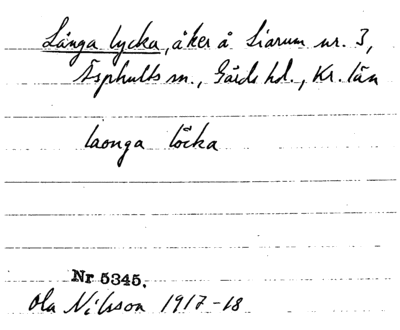 Långa lycka, åker å Liarum nr. 3,
Äsphults sn., Gärds hd., Kr. län
laonga löcka
Nr 5345.
Ola Nilsson 1917-18